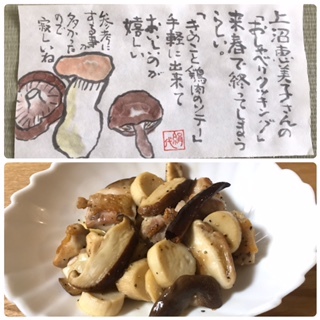 上沼恵美子さんの
「おしゃべりクッキング」
来春で終ってしまう
らしい。
「きのこと鶏肉のソテー」
手軽に出来て
おいしいのが
嬉しい
参考に
する事が
多かった
ので
寂しいね